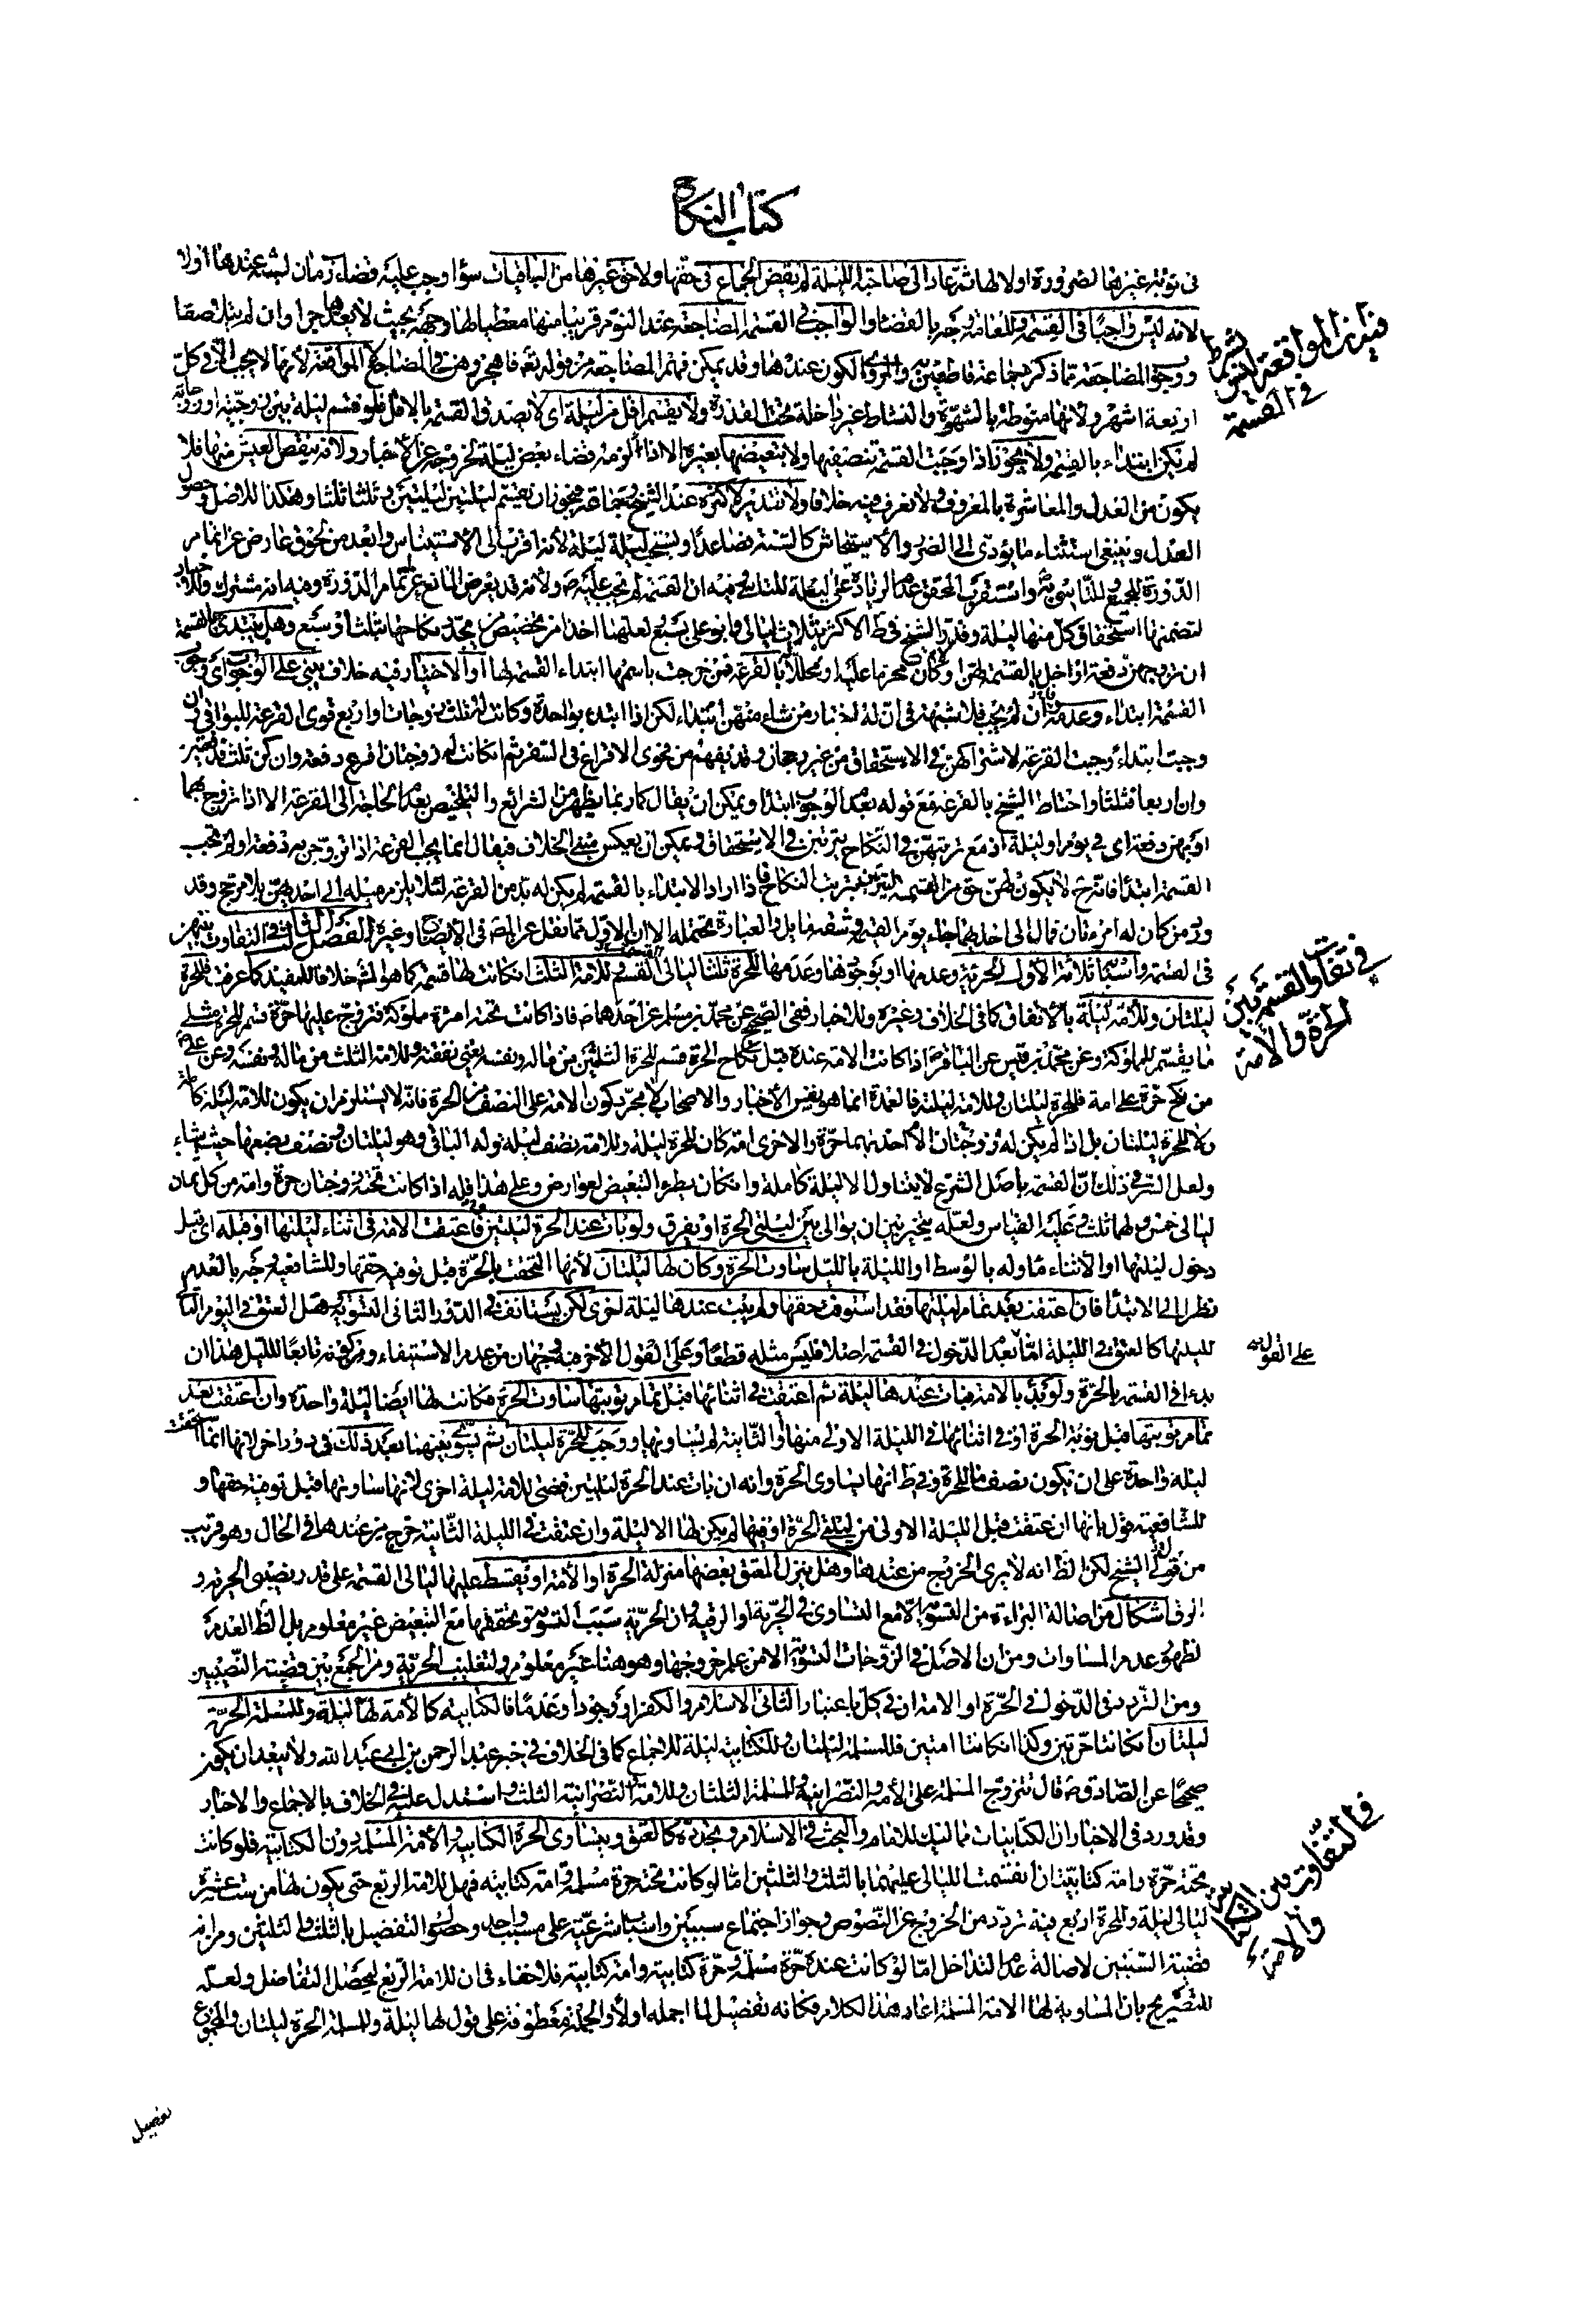 كتاب النكاح
في نوبة غيرها لضرورة اولا لها ثم عاد الى صاحبة الليلة لم يقض الجماع في حقها ولا حق غيرها من الباقيات سواء وجب عليه قضاء زمان لبثه عندها اولا
لانه ليس واجبا في القسمة وللعامة وجه بالقضاء والواجب في القسمة المضاجعة عند النوم قريبا منها معطيا لها وجهه بحيث لا يعد هاجرا وان لم يتلاصقا
ووجوب المضاجعة مما ذكره جماعة قاطعين به والمروي الكون عندها وقد يمكن فهم المضاجعة من قوله تعالى فاهجروهن في المضاجع لا المواقعة لانها لا يجب الا في كل
اربعة اشهر ولانها منوطة بالشهوة والنشاط غير داخلة تحت القدرة ولا يقسم اقل من ليلة اي لا يصدق القسمة بالاقل فلو قسم ليلة بين زوجتيه او زوجاته
لم يكن ابتداء بالقسمة ولا يجوز اذا وجبت القسمة تنصيفها ولا تبعيضها بغيره الا اذا لزمه قضاء بعض ليلة لخروجه عن الاخبار ولانه ينقص العيش منها فلا
يكون من العدل والمعاشرة بالمعروف ولا نعرف فيه خلافا ولا تقدير لاكثره عند الشيخ وجماعة فيجوز ان يقسم ليلتين ليلتين وثلثا ثلثا وهكذا للاصل وحصول
العدل وينبغي استثناء ما يؤدي الى الضرر والاستيحاش كالسنة فصاعدا ويستحب ليلة ليلة لانه اقرب الى الاستيناس وابعد من لحوق عارض عن اتمام
الدورة للجميع وللتاسي به واستقرب المحقق عدم الزيادة على ليلة للتاسي وفيه ان القسمة لم تجب عليه ص ولانه قد يعرض المانع عن اتمام الدورة وفيه انه مشترك وللاخبار
لتضمنها استحقاق كل منها ليلة وقدر الشيخ في ط الاكثر بثلاث ليالي وابو علي بسبع لعلهما اخذا من تخصيص من يجدد نكاحها بثلث او سبع وهل يبتدئ بالقسمة
ان تزوجهن دفعة او اخل بالقسمة لهن وكان محرما عليه او محللا بالقرعة فمن خرجت باسمها ابتداء القسمة لها او الاختيار فيه خلاف يبنى على الوجوب اي وجوب
القسمة ابتداء وعدمه فان لم يجب فلا شبهة في ان له اختيار من شاء منهن ابتداء لكن اذا ابتدء بواحدة وكانت له ثلث زوجات او اربع قوى القرعة للبواقي وان
وجبت ابتداء وجبت القرعة لاشتراكهن في الاستحقاق من غير رجحان وقد يفهم من فحوى الاقراع في السفر ثم ان كانت له زوجتان اقرع دفعة وان كن ثلث فدفعتين
وان اربعا فثلثا واحتاط الشيخ بالقرعة مع قوله بعدم الوجوب ابتداء ويمكن ان يقال كما ربما يظهر من الشرائع والتلخيص بعدم الحاجة الى القرعة الا اذا تزوج بهما
او بهن دفعة اي في يوم او ليلة اذ مع ترتبهن في النكاح يترتبن في الاستحقاق ويمكن ان يعكس مبنى الخلاف فيقال انما يجب القرعة اذا تزوجهن دفعة اولم تجب
القسمة ابتداء فانه ح لا يكون لهن حق من القسمة ليترتبن بترتب النكاح فاذا اراد الابتداء بالقسمة لم يكن له بد من القرعة لئلا يلزم ميله الى احدهن بلا مرجح وقد
ورد من كان له امراتان فمال الى احديهما جاء يوم القيمة وشقه مايل والعبارة تحتمله الا ان الاول مما نقل عن المصنف في الايضاح وغيره الفصل الثالث في التفاوت بينهن
في القسمة واسبابه ثلاثة الاول الحرية وعدمها او بوجودها وعدمها للحرة ثلثا ليالي القسم وللامة الثلث ان كانت لها قسمة كما هو المشهور خلافا للمفيد كما عرفت فللحرة
ليلتان وللامة ليلة بالاتفاق كما في الخلاف وغيره وللاخبار ففي الصحيح عن محمد بن مسلم عن احدهما ص فاذا كانت تحته امراة مملوكة فتزوج عليها حرة قسم للحرة مثلي
ما يقسم للمملوكة وعن محمد بن قيس عن الباقر ص اذا كانت الامة عنده قبل نكاح الحرة قسم للحرة الثلثين من ماله ونفسه يعني نفقته وللامة الثلث من ماله ونفسه وعن علي ص
من نكح حرة على امة فللحرة ليلتان وللامة ليلة فالعمدة انما هو نفس الاخبار والاصحاب لا مجرد كون الامة على النصف من الحرة فانه لا يستلزم ان يكون للامة ليلة كاملة
ولا للحرة ليلتان بل اذا لم يكن له زوجتان الا احديهما حرة والاخرى امة كان للحرة ليلة وللامة نصف ليلة وله الباقي وهو ليلتان ونصف يضعها حيث يشاء
ولعل السر في ذلك ان القسمة باصل الشرع لا يتناول الا ليلة كاملة وان كان يطرء التبعيض لعوارض وعلى هذا فله اذا كانت تحته زوجتان حرة وامة من كل ثمان
ليالى خمس ولهما ثلث وعليه القياس ولعله يتخير بين ان يوالى بين ليلتي الحرة او يفرق ولو بات عند الحرة ليلتين فاعتقت الامة في اثناء ليلتها او قبله اي قبل
دخول ليلتها او الاثناء مأوله بالوسط او الليلة بالليل ساوت الحرة وكان لها ليلتان لانها التحقت بالحرة قبل توفية حقها وللشافعية وجه بالعدم
نظرا الى الابتداء فان اعتقت بعد تمام ليلتها فقد استوفت حقها ولم يبت عندها ليلة اخرى لكن يستانف في الدور الثاني التسوية وهل العتق في اليوم التالي
لليلتها كالعتق في الليلة اما بعدم الدخول في القسمة اصلا فليس مثله قطعا وعلى القول الاخر فيه وجهان من عدم الاستيفاء ومن كونه تابعا لليل هذا ان
على القولين
بدء في القسمة بالحرة ولو بدء بالامة فبات عندها ليلة ثم اعتقت في اثنائها قبل تمام نوبتها ساوت الحرة فكانت لها ايضا ليلة واحدة وان اعتقت بعد
تمام نوبتها قبل نوبة الحرة او في اثنائها في الليلة الاولى منها او الثانية لم يساوها ووجب للحرة ليلتان ثم يسوي بينهما بعد ذلك في دور اخر لانها انما استحقت
ليلة واحدة على ان يكون نصف ما للحرة وفي ط انها يساوى الحرة وانه ان بات عند الحرة ليلتين قضى للامة ليلة اخرى لانها ساوتها قبل توفية حقها و
للشافعية قول بانها ان عتقت قبل الليلة الاولى من ليلتي الحرة او فيها لم يكن لها الا ليلة وان عتقت في الليلة الثانية خرج من عندها في الحال وهو قريب
من قول الشيخ لكن الظ انه لا يرى الخروج من عندها وهل ينزل المعتق بعضها منزلة الحرة او الامة او يقسط عليها ليالي القسمة على قدر نصيبى الحرية و
الرق اشكال من اصالة البراءة من التسوية الا مع التساوى في الحرية او الرقية وان الحرية سبب التسوية وتحققها مع التبعيض غير معلوم بل الظ العدم
لظهور عدم المساوات ومن ان الاصل في الزوجات التسوية الا من علم خروجها وهو هنا غير معلوم ولتغليب الحرية ومن الجمع بين قضية النصيبين
ومن التردد في الدخول في الحرة او الامة او في كل باعتبار الثاني الاسلام والكفر او وجودا وعدما فالكتابية كالامة لها ليلة وللمسلمة الحرة
ليلتان ان كانتا حرتين وكذا ان كانتا امتين فللمسلمة ليلتان وللكتابية ليلة للاجماع كما في الخلاف وفي خبر عبد الرحمن بن ابي عبد الله ولا يبعد ان يكون
صحيحا عن الصادق ص قال تتزوج المسلمة على الامة والنصرانية وللمسلمة الثلثان وللامة والنصرانية الثلث واستدل عليه في الخلاف بالاجماع والاخبار
وقد ورد في الاخبار ان الكتابيات مماليك للامام والبحث في الاسلام وتجدده كالعتق ويتساوى الحرة الكتابية والامة المسلمة دون الكتابية فلو كانت
تحته حرة وامة كتابيتان انقسمت الليالي عليهما بالثلث والثلثين اما لو كانت تحته حرة مسلمة وامة كتابية فهل للامة الربع حتى يكون لها من ست عشرة
ليالى ليلة وللحرة اربع فيه تردد من الخروج عن النصوص وجواز اجتماع سببين واسباب شرعية على مسبب واحد وحصول التفضيل بالثلث والثلثين ومن انه
قضية السببين لاصالة عدم التداخل امّا لو كانت عنده حرة مسلمة وحرة كتابية وامة كتابية فلا خفاء في ان للامة الربع ليحصل التفاضل ولعله
للتصريح بان المساوية لها الامة المسلمة اعاد هذا الكلام فكانه تفصيل لما اجمله اولا والجملة معطوفة على قوله لها ليلة وللمسلمة الحرة ليلتان والمجموع
تفصيل
في ان المواقعة ليس بشرط
في القسمة
في تفاوت القسمة بين
الحرة والامة
في التفاوت بين
والامة